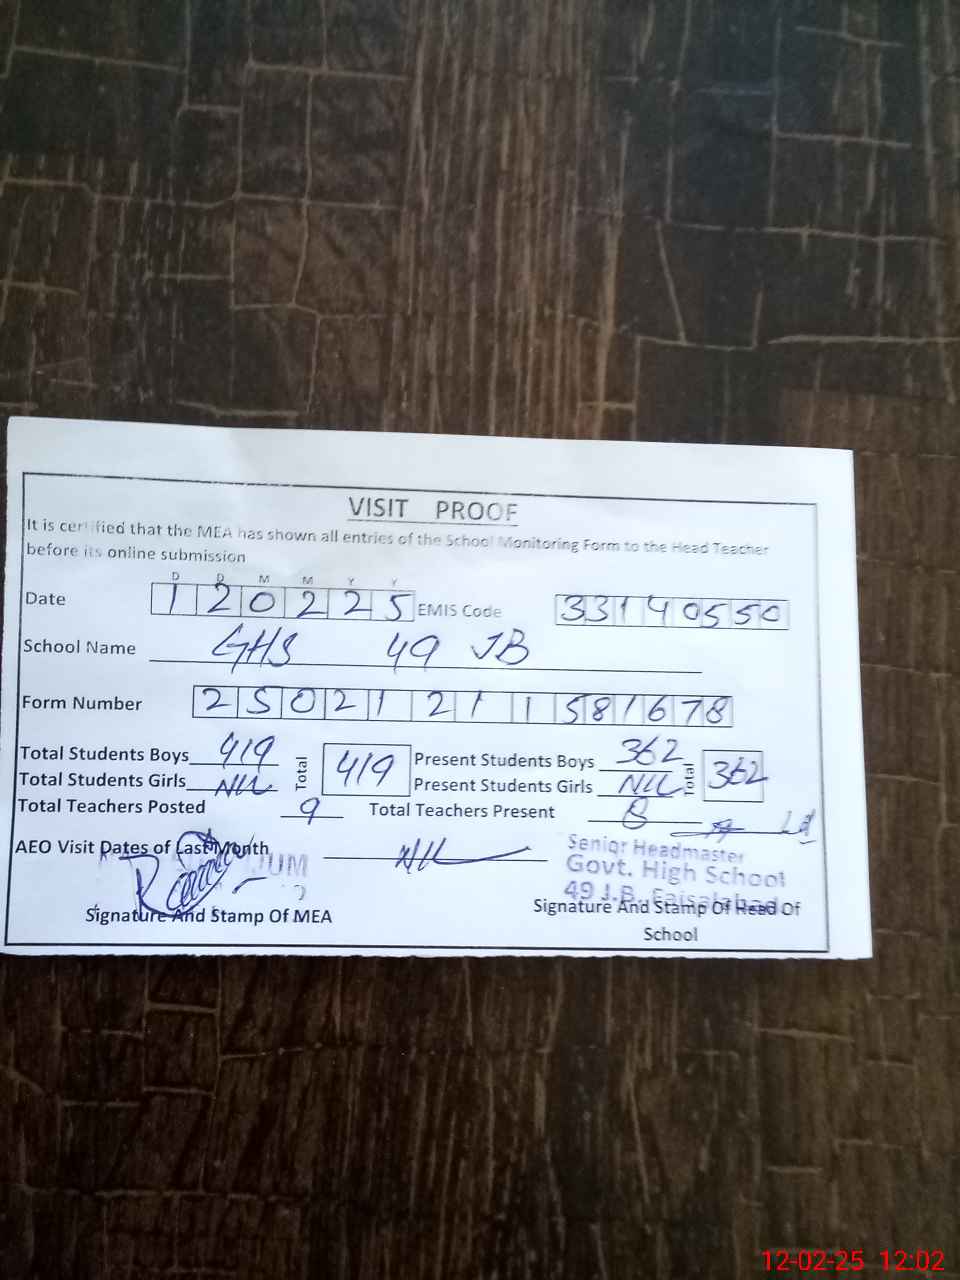 VISIT PROOF
It is certified that the MEA has shown all entries of the School Monitoring Form to the Head Teacher
before its online submission
D D M M Y Y
Date 120225 EMIS Code 33140550
School Name GHS 49 JB
Form Number 25021211581678
Total Students Boys 419 Total 419 Present Students Boys 362 Total 362
Total Students Girls Nil Present Students Girls Nil
Total Teachers Posted 9 Total Teachers Present 8
AEO Visit Dates of Last Month Nil
Senior Headmaster
Govt. High School
49 J.B. Faisalabad
Signature And Stamp Of MEA
Signature And Stamp Of Head Of
School
12-02-25 12:02